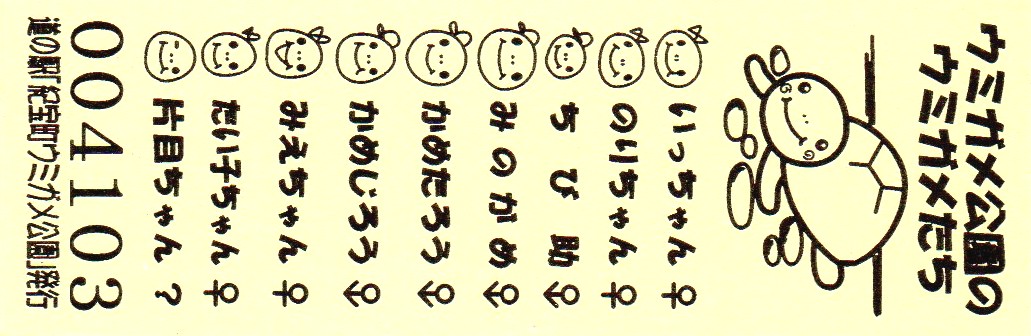 ウミガメ公園の
ウミガメたち
いっちゃん ♀
のりちゃん ♀
ちび助 ♂
みのがめ ♂
かめたろう ♂
かめじろう ♂
みえちゃん ♀
たい子ちゃん ♀
片目ちゃん ?
004103
道の駅「紀宝町ウミガメ公園」発行